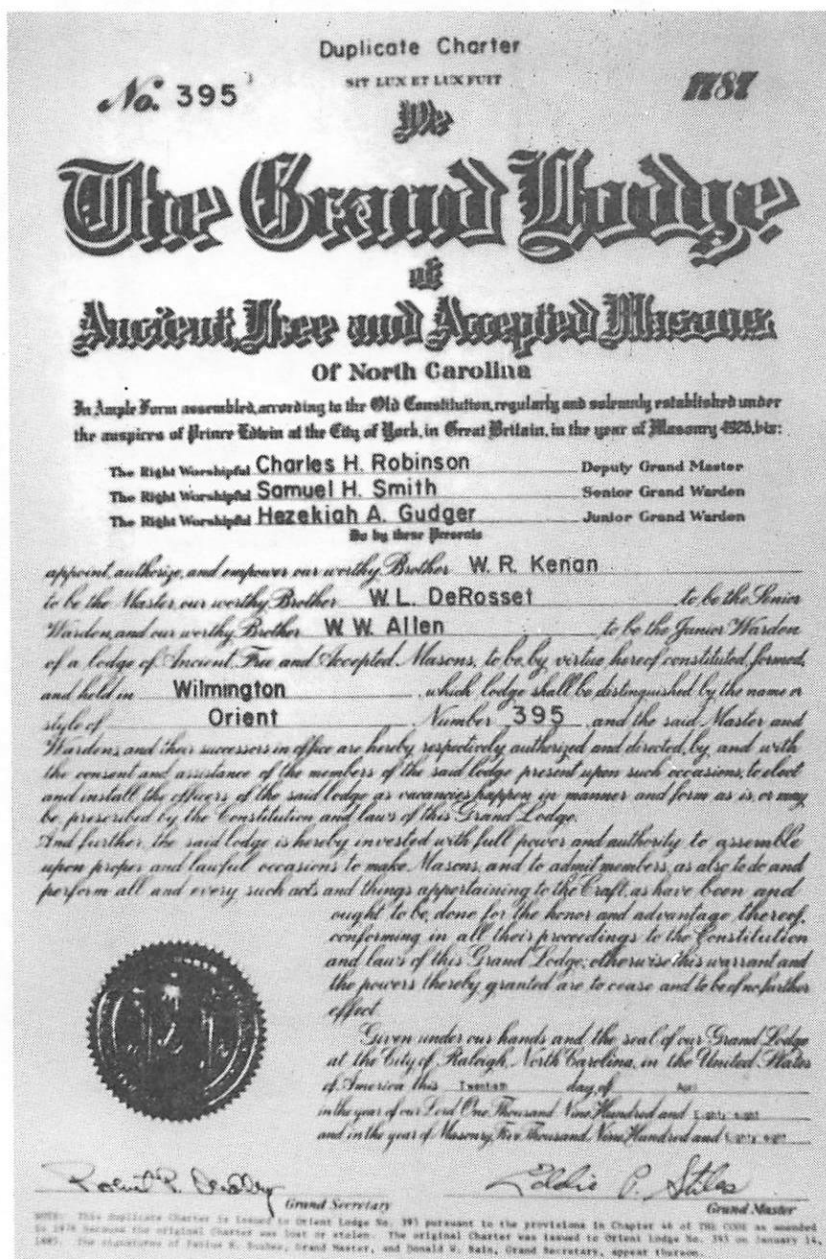 Duplicate Charter
No. 395
SIT LUX ET LUX FUIT
1787
We
The Grand Lodge
of
Ancient, Free and Accepted Masons
Of North Carolina
In Ample Form assembled, according to the Old Constitution, regularly and solemnly established under
the auspices of Prince Edwin at the City of York, in Great Britain, in the year of Masonry 4926, viz:
The Right Worshipful Charles H. Robinson Deputy Grand Master
The Right Worshipful Samuel H. Smith Senior Grand Warden
The Right Worshipful Hezekiah A. Gudger Junior Grand Warden
Do by these Presents
appoint, authorize, and empower our worthy Brother W. R. Kenan
to be the Master, our worthy Brother W. L. DeRosset to be the Senior
Warden, and our worthy Brother W. W. Allen to be the Junior Warden
of a lodge of Ancient, Free and Accepted Masons, to be, by virtue hereof constituted, formed,
and held in Wilmington, which lodge shall be distinguished by the name or
style of Orient Number 395, and the said Master and
Wardens, and their successors in office are hereby respectively authorized and directed, by and with
the consent and assistance of the members of the said lodge present upon such occasions, to elect
and install the officers of the said lodge as vacancies happen in manner and form as is, or may
be, prescribed by the Constitution and laws of this Grand Lodge.
And further, the said lodge is hereby invested with full power and authority to assemble
upon proper and lawful occasions to make Masons, and to admit members, as also to do and
perform all and every such acts and things appertaining to the Craft, as have been and
ought to be, done for the honor and advantage thereof,
conforming in all their proceedings to the Constitution
and laws of this Grand Lodge; otherwise this warrant and
the powers thereby granted are to cease and to be of no further
effect.
Given under our hands and the seal of our Grand Lodge
at the City of Raleigh, North Carolina, in the United States
of America this Twentieth day of April
in the year of our Lord One Thousand Nine Hundred and Eighty eight
and in the year of Masonry Five Thousand Nine Hundred and Eighty eight
Eddie P. Stiles
Grand Secretary
Grand Master
NOTE: This duplicate Charter is issued to Orient Lodge No. 395 pursuant to the provisions in Chapter 46 of THE CODE as amended
in 1978 because the original Charter was lost or stolen. The original Charter was issued to Orient Lodge No. 395 on January 14,
1885. The signatures of Fabius H. Busbee, Grand Master, and Donald W. Bain, Grand Secretary, appear thereon.